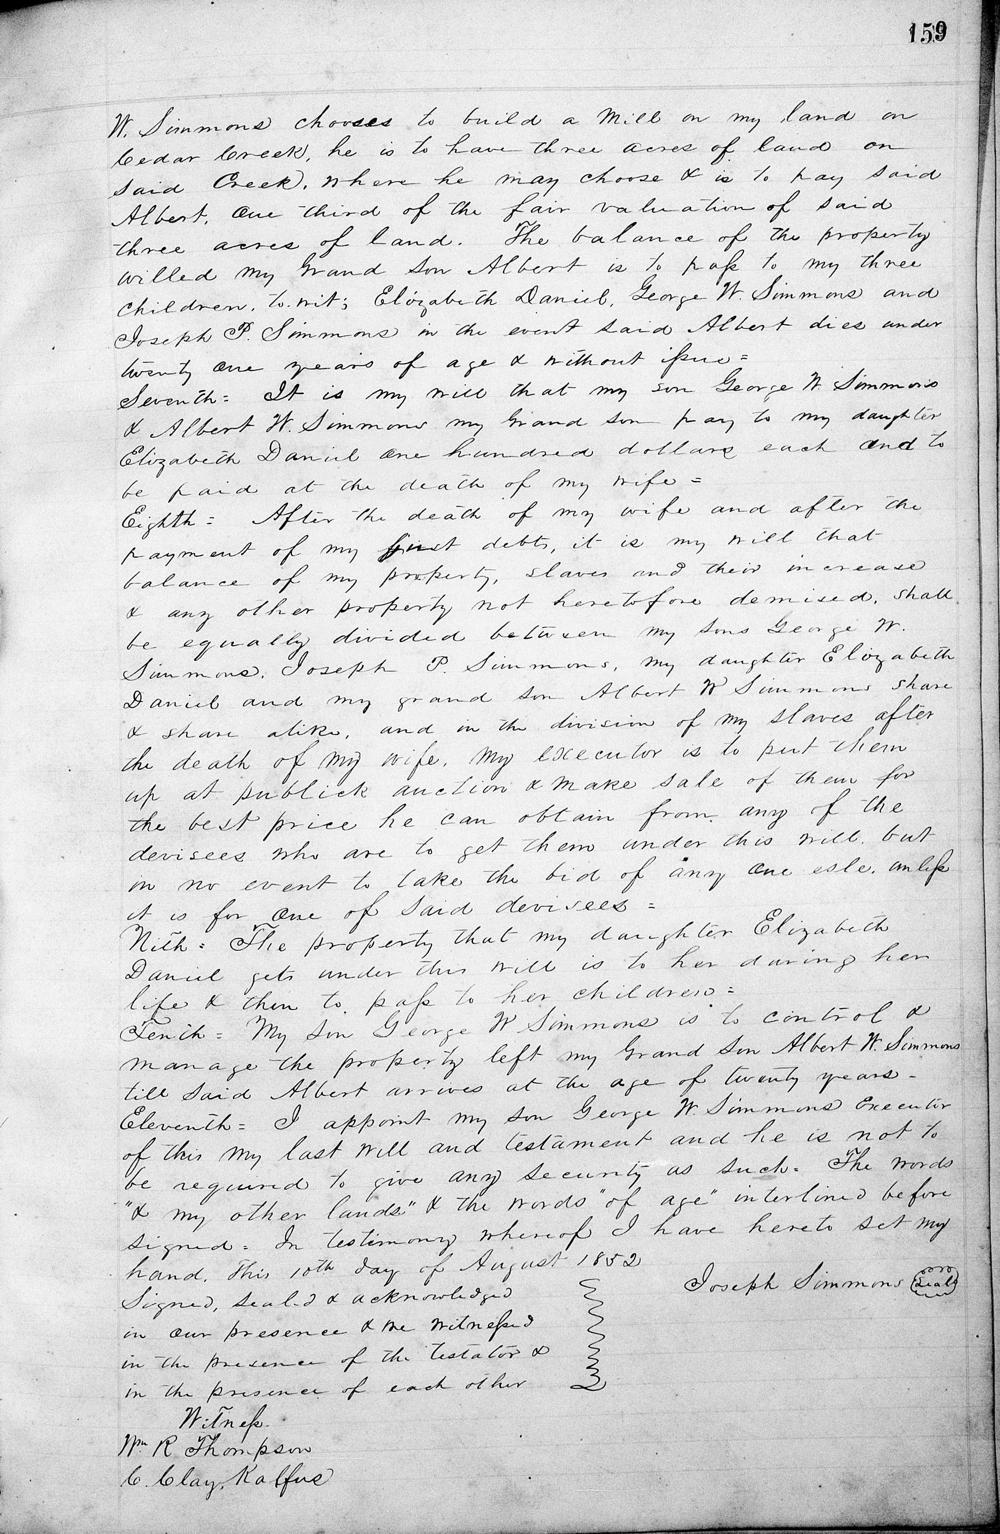 159
W. Simmons chooses to build a Mill on my land on
Cedar Creek, he is to have three acres of land on
said Creek, where he may choose & is to pay said
Albert, one third of the fair valuation of said
three acres of land. The balance of the property
willed my Grand son Albert is to pass to my three
children, to wit; Elizabeth Daniel, George W. Simmons and
Joseph P. Simmons in the event said Albert dies under
twenty one years of age & without issue =
Seventh = It is my will that my son George W Simmons
& Albert W. Simmons my Grand son pay to my daughter
Elizabeth Daniel one hundred dollars each and to
be paid at the death of my wife =
Eighth = After the death of my wife and after the
payment of my just debts, it is my will that
balance of my property, slaves and their increase
& any other property not heretofore demised, shall
be equally divided between my sons George W.
Simmons, Joseph P. Simmons, my daughter Elizabeth
Daniel and my grand son Albert W Simmons share
& share alike, and in the division of my slaves after
the death of my wife, my executor is to put them
up at publick auction & make sale of them for
the best price he can obtain from any of the
devisees who are to get them under this will, but
in no event to take the bid of any one esle, unless
it is for one of said devisees =
Nith = The property that my daughter Elizabeth
Daniel gets under this will is to her during her
life & then to pass to her children =
Tenth = My son George W Simmons is to control &
manage the property left my Grand Son Albert W. Simmons
till said Albert arrives at the age of twenty years -
Eleventh = I appoint my son George W. Simmons Executor
of this my last will and testament and he is not to
be required to give any security as such. The words
"& my other lands" & the words "of age" interlined before
signed = In testimony whereof I have hereto set my
hand, This 10th day of August 1852
Joseph Simmons (Seal)
Signed, sealed & acknowledged
in our presence & we witnessed
in the presence of the testator &
in the presence of each other
Witness
Wm R Thompson
C. Clay, Kalfus